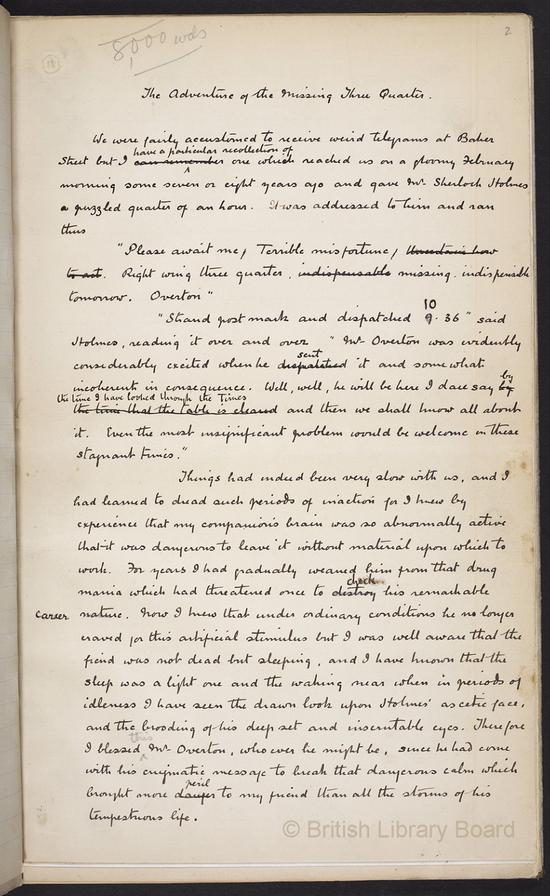 8,000 wds
2
18
The Adventure of the Missing Three Quarter.
We were fairly accustomed to receive weird telegrams at Baker
have a particular recollection of
Street but I can remember one which reached us on a gloomy February
morning some seven or eight years ago and gave Mr. Sherlock Holmes
a puzzled quarter of an hour. It was addressed to him and ran
thus
"Please await me, Terrible misfortune, Uncertain how
to act. Right wing three quarter, indispensable missing. indispensible
tomorrow. Overton"
10
"Strand post mark and dispatched 9.36" said
Holmes, reading it over and over. "Mr. Overton was evidently
sent
considerably excited when he dispatched it and somewhat
incoherent in consequence. Well, well, he will be here I dare say by
by
the time I have looked through the Times
the time that the table is cleared and then we shall know all about
it. Even the most insignificant problem would be welcome in these
stagnant times."
Things had indeed been very slow with us, and I
had learned to dread such periods of inaction for I knew by
experience that my companion's brain was so abnormally active
that it was dangerous to leave it without material upon which to
work. For years I had gradually weaned him from that drug
check
mania which had threatened once to destroy his remarkable
career nature. Now I knew that under ordinary conditions he no longer
craved for this artificial stimulus but I was well aware that the
fiend was not dead but sleeping, and I have known that the
sleep was a light one and the waking near when in periods of
idleness I have seen the drawn look upon Holmes' ascetic face,
and the brooding of his deep set and inscrutable eyes. Therefore
this
I blessed Mr. Overton, whoever he might be, since he had come
with his enigmatic message to break that dangerous calm which
peril
brought more danger to my friend than all the storms of his
tempestuous life.
© British Library Board